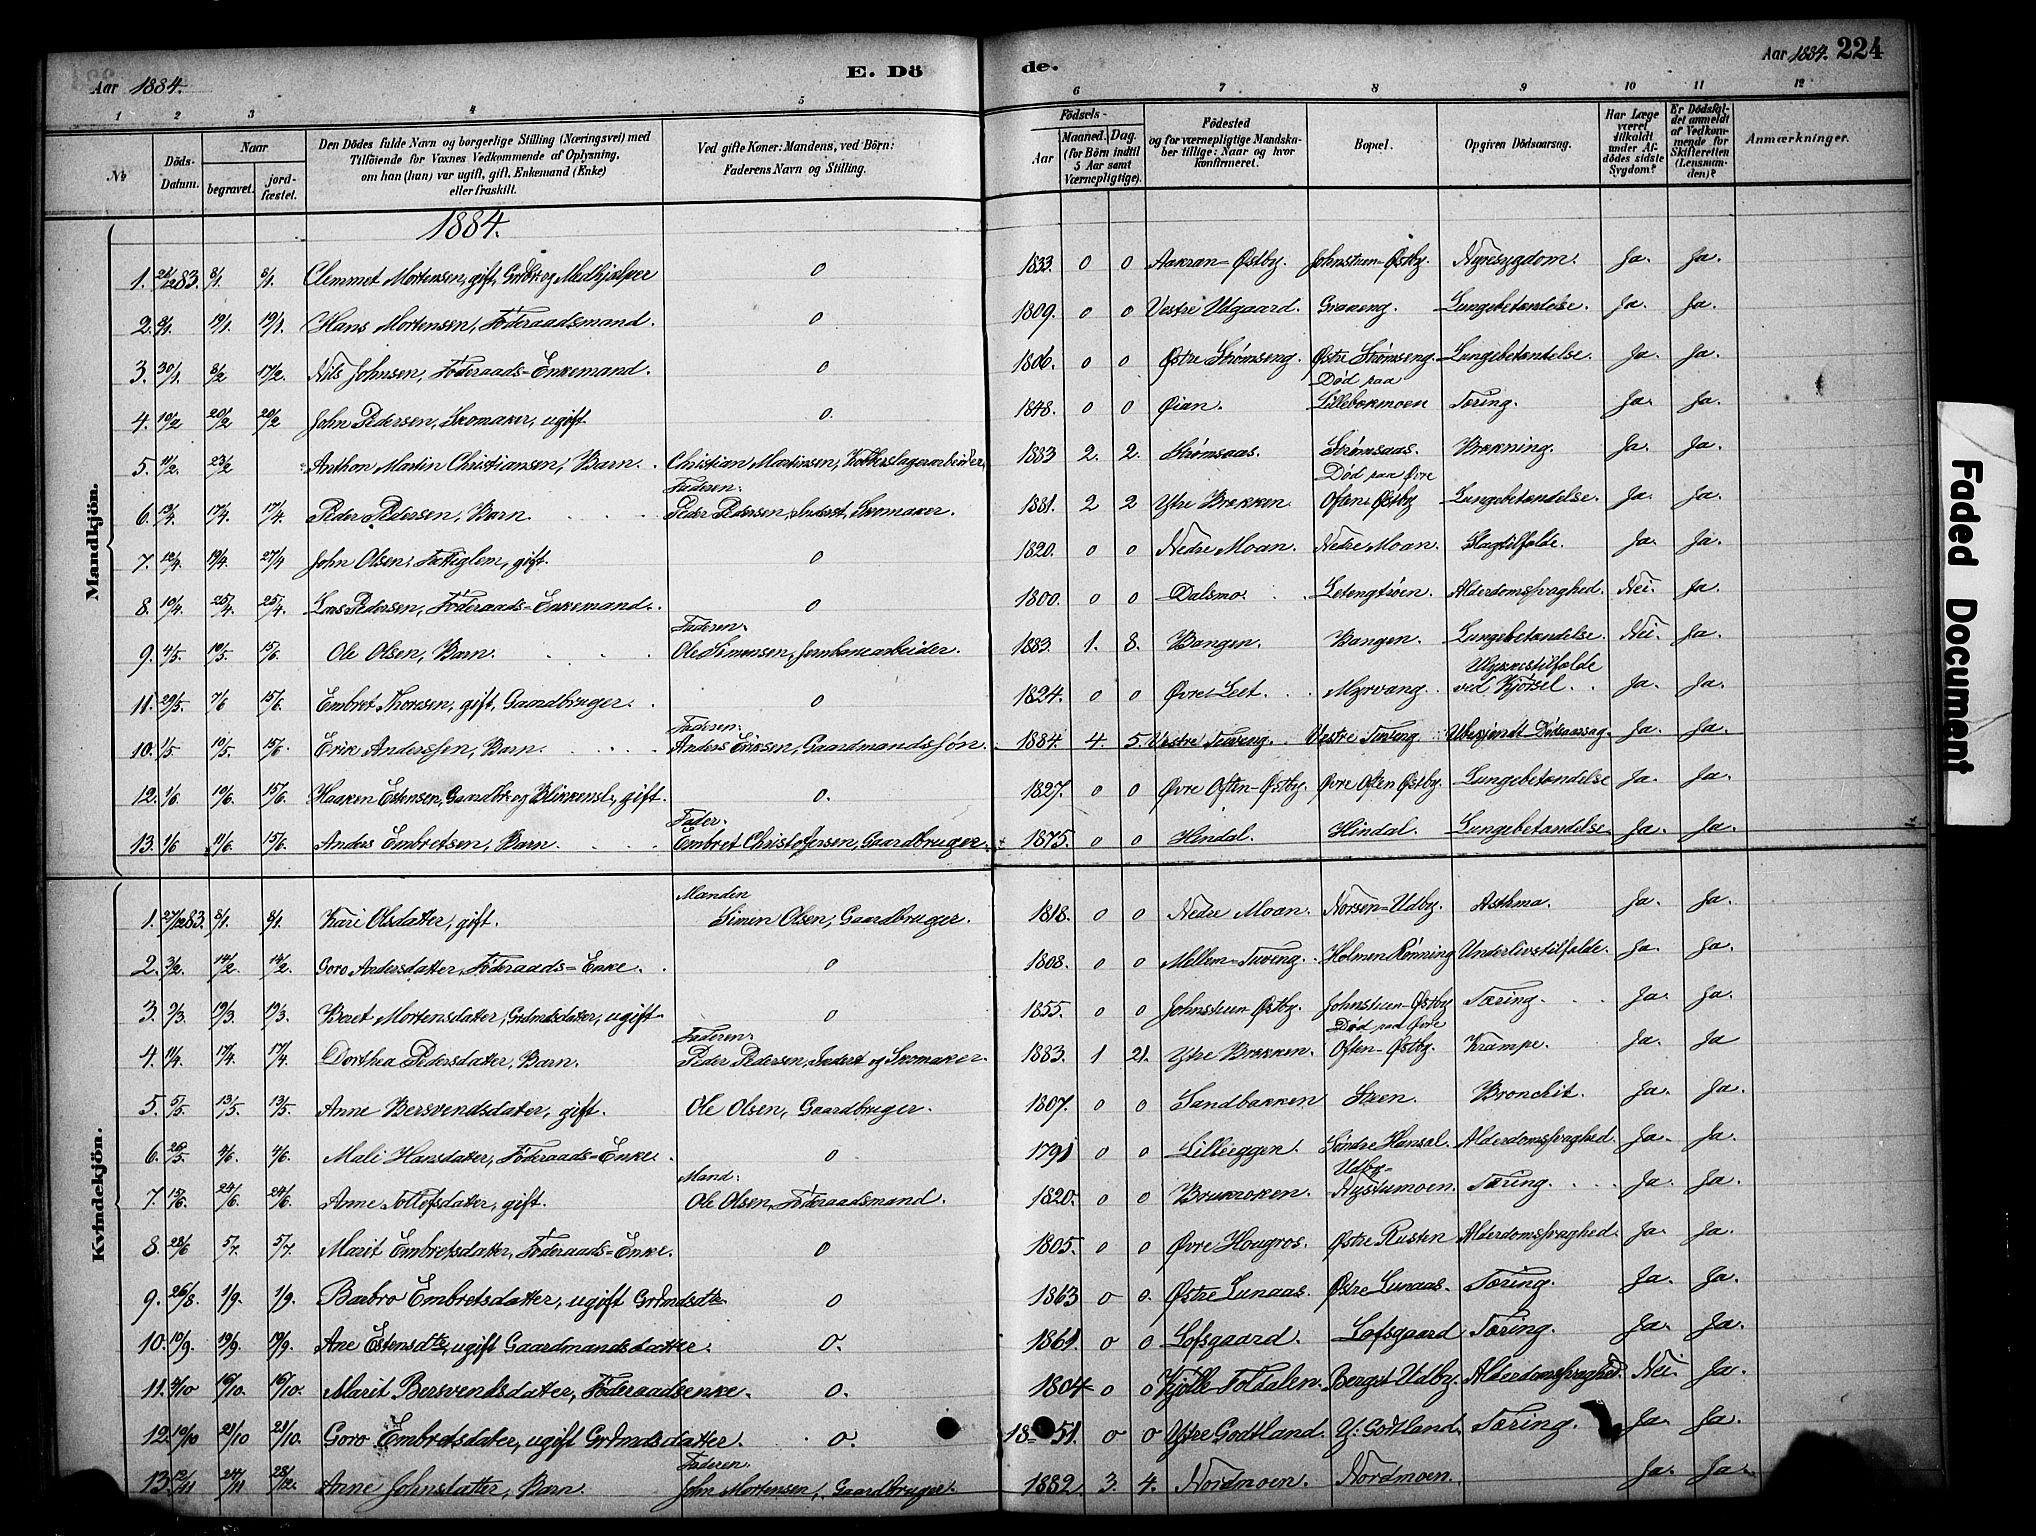 Aar 1884. E. Dö de. Aar 1884. 224
1 2 3 4 5 6 7 8 9 10 11 12
No Döds-Datum. Naar begravet. jordfæstet. Den Dödes fulde Navn og borgerlige Stilling (Næringsvei) med Tilföiende for Voxnes Vedkommende af Oplysning, om han (hun) var ugift, gift, Enkemand (Enke) eller fraskilt. Ved gifte Koner: Mandens, ved Börn: Faderens Navn og Stilling. Födsels- Aar Maaned. Dag. (for Börn indtil 5 Aar samt Værnepligtige). Födested og for værnepligtige Mandskaber tillige: Naar og hvor konfirmeret. Bopæl. Opgiven Dödsaarsag. Har Læge været tilkaldt under Afdödes sidste Sygdom? Er Dödsfaldet anmeldt af Vedkommende for Skifteretten (Lensmanden)? Anmærkninger.
1884.
Mandkjön.
1. 21/12 83. 8/1. 8/1. Clemmet Mortensen, gift, Grdbr. og Medhjælper 0 1833. 0 0 Aakran-Østby. Johnstuen-Østby. Nyresygdom. Ja. Ja.
2. 8/1. 19/1. 19/1. Hans Mortensen, Föderaadsmand. 0 1809. 0 0 Vestre Udgaard. Graneng. Lungebetændelse. Ja. Ja.
3. 30/1. 8/2 17/2. Nils Johnsen, Föderaads-Enkemand. 0 1806. 0 0 Østre Strømseng. Østre Strømseng. Lungebetændelse. Ja. Ja.
4. 10/2 20/2 20/2 John Pedersen, Skomaker, ugift 0. 1848. 0 0 Øian. Död paa Lillebækmoen Tæring. Ja. Ja.
5. 11/2. 23/2 Anthon Martin Christiansen, Barn. Christian Martinsen, Kobberslagerarbeider, 1883 2. 2. Strømsaas. Strømsaas. Brækning. Ja. Ja.
6. 13/4. 17/4. 17/4. Peder Pedersen, Barn. Faderen. Peder Pedersen, Inderst, Skomaker. 1881. 2 2 Ytre Brækken. Död paa Øvre Often-Østby Lungebetændelse. Ja. Ja.
7. 12/4. 19/4. 27/4 John Olsen, Fattiglem, gift. 0 1820. 0 0 Nedre Moan. Nedre Moan. Slagtilfælde. Ja. Ja.
8. 10/4. 25/4. 25/4. Lars Pedersen, Föderaads-Enkemand. 0 1800. 0 0 Dalsmo. Letengtrøen. Alderdomssvaghed. Nei. Ja.
9. 4/5. 10/5. 15/6. Ole Olsen, Barn. Faderen. Ole Simensen, Jernbanearbeider. 1883. 1. 8. Vangen. Vangen. Lungebetændelse. Nei. Ja.
11. 29/5. 7/6 15/6. Embret Thoresen, gift, Gaardbruger. 0 1824. 0 0 Øvre Leet. Myrvang. Ulykkestilfælde ved Kjørsel. Ja. Ja.
10. 1/5 10/5. 15/6. Erik Anderssen, Barn. Faderen. Anders Eriksen, Gaardmandssøn. 1884. 4. 5. Vestre Tuveng. Vestre Tuveng Ubekjendt Dødsaarsag. Ja. Ja.
12. 1/6. 10/6. 15/6. Haaken Estensen, Gaardbr. og Blikkensl., gift. 0. 1827. 0 0 Øvre Often-Østby. Øvre Often Østby. Lungebetændelse Ja. Ja.
13. 1/6 11/6. 15/6. Anders Embretsen, Barn. Fader. Embret Christofersen, Gaardbruger. 1875. 0 0 Hindal. Hindal. Lungebetændelse Ja. Ja.
Kvindekjön.
1. 27/12 83. 8/1. 8/1. Kari Olsdatter, gift. Manden Simen Olsen, Gaardbruger. 1818. 0 0 Nedre Moan. Norsen-Udby. Asthma. Ja. Ja.
2. 3/2. 14/2. 14/2. Goro Andersdatter, Föderaads-Enke. 0 1808. 0 0 Mellem-Tuveng. Holmen Rønning Underlivstilfælde. Ja. Ja.
3. 9/3. 19/3. 19/3. Beret Mortensdatter, Grdmdsdatter, ugift. 0 1855. 0 0 Johnstuen Østby. Johnstuen-Østby Tæring. Ja. Ja.
4. 11/4. 17/4. 17/4. Dorthea Pedersdatter, Barn. Faderen. Peder Pedersen, Inderst og Skomaker. 1883. 1 21. Ytre Brækken. Död paa Øvre Often-Østby. Krampe. Ja. Ja
5. 5/5. 13/5. 13/5. Anne Bersvendsdatter, gift. Ole Olsen, Gaardbruger. 1807. 0 0 Sandbakken Steen. Bronchit. Ja. Ja.
6. 26/5. 4/6. 4/6. Mali Hansdatter, Föderaads-Enke. 0 1791 0 0 Lilleeggen. Søndre Hansal. Alderdomssvaghed. Ja. Ja.
7. 15/6. 24/6. 24/6. Anne Tollefsdatter, gift. Mand. Ole Olsen, Föderaadsmand. 1820. 0 0 Brukroken. Udby-Nystumoen. Tæring. Ja. Ja.
8. 28/6 5/7. 5/7. Marit Embretsdatter, Föderaads-Enke. 0 1805. 0 0 Øvre Hougros. Østre Rusten Alderdomssvaghed. Ja. Ja.
9. 26/8. 1/9. 1/9. Barbro Embretsdatter, ugift Grdmdsdtr. 0 1863 0 0. Østre Lunaas. Østre Lunaas. Tæring. Ja. Ja.
10. 10/9. 19/9. 19/9. Ane Estensdtr., ugift Gaardmandsdatter. 0. 1861. 0 0 Lofsgaard. Lofsgaard Tæring. Ja. Ja.
11. 4/10 16/10. 16/10. Marit Bersvendsdatter, Föderaadsenke. 0. 1804 0 0 Kjølle-Foldalen. Berget Udby. Alderdomssvaghed. Nei. Ja.
12. 10/10 21/10 21/10. Goro Embretsdatter, ugift Grdmdsdatter. 0. 1851. 0 0 Ytre Godtland. Y. Godtland. Tæring. Ja. Ja.
13. 12/11 24/11 28/12. Anne Johnsdatter, Barn. Faderen. John Mortensen, Gaardbruger. 1882. 3. 4. Nordmoen. Nordmoen. Ja. Ja.
Faded Document